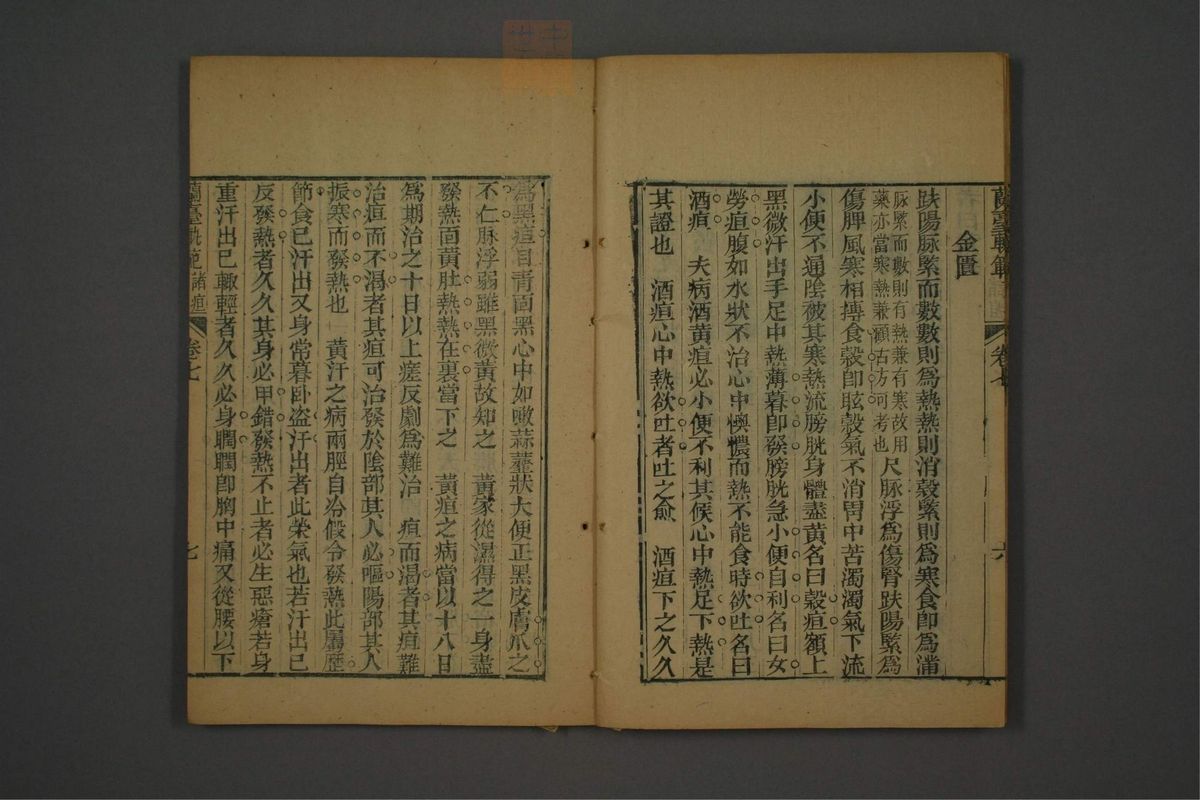 金匱
趺陽脉緊而數數則爲熱熱則消穀緊則爲寒食卽爲滿
脉緊而數則有熱兼有寒故用
藥亦當寒熱兼顧古方可考也
尺脉浮爲傷腎趺陽緊爲
傷脾風寒相摶食穀卽眩穀氣不消胃中苦濁濁氣下流
小便不通陰被其寒熱流膀胱身體盡黃名曰穀疸額上
黑微汗出手足中熱薄暮卽發膀胱急小便自利名曰女
勞疸腹如水狀不治心中懊憹而熱不能食時欲吐名曰
酒疸 夫病酒黃疸必小便不利其候心中熱足下熱是
其證也 酒疸心中熱欲吐者吐之愈 酒疸下之久久
卷七
六
爲黑疸目青面黑心中如噉蒜虀狀大便正黑皮膚爪之
不仁脉浮弱雖黑微黃故知之 黃家從濕得之一身盡
發熱面黃肚熱熱在裏當下之 黃疸之病當以十八日
爲期治之十日以上瘥反劇爲難治 疸而渴者其疸難
治疸而不渴者其疸可治發於陰部其人必嘔陽部其人
振寒而發熱也 黃汗之病兩脛自冷假令發熱此屬歷
節食已汗出又身常暮卧盗汗出者此榮氣也若汗出已
反發熱者久久其身必甲錯發熱不止者必生惡瘡若身
重汗出已輙輕者久久必身瞤瞤卽胸中痛又從腰以下
蘭臺軌範諸疸
卷七
七